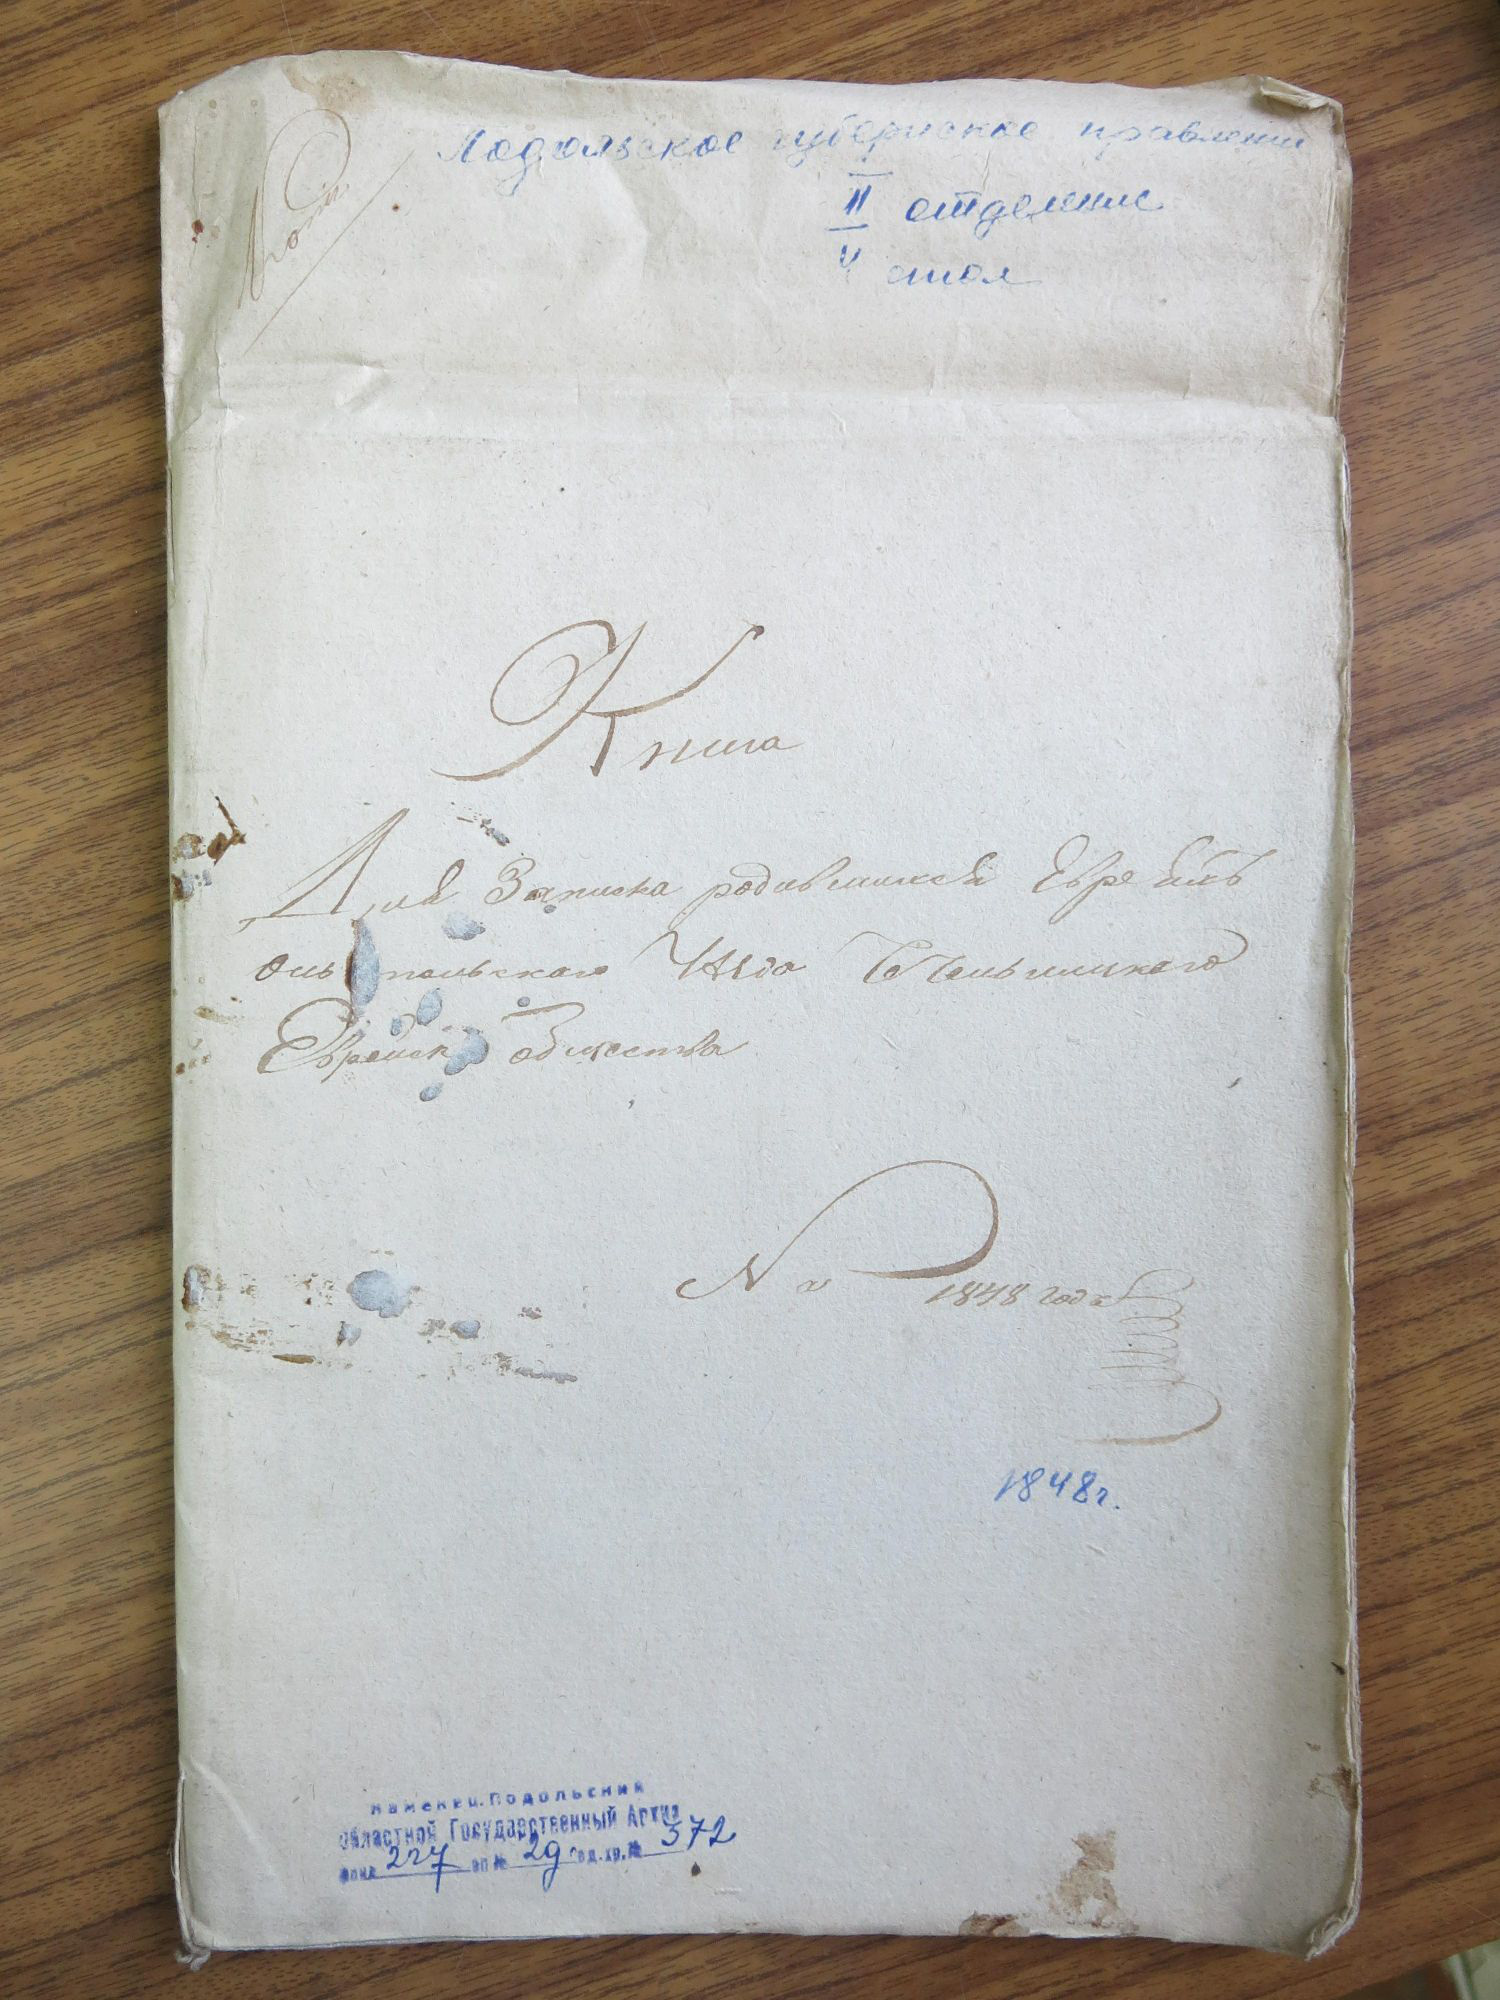 Копія
Подольское губернское правление
II отделение
4 стол
Книга
Для Записки родившихся Евреивъ
Оль польскаго
Еврейск общества
На 1848 года
1848г.
Каменец-Подольский
Областной Государственный Архив
фонд 227 оп № 29 ед.хр.№ 572